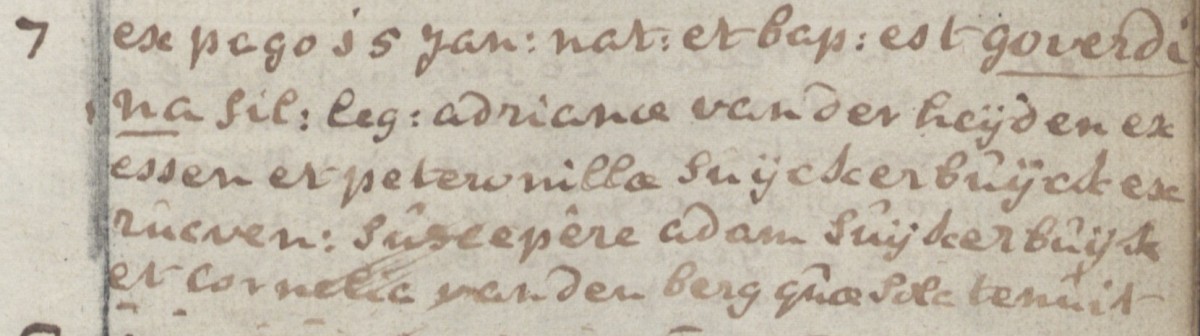 7 ex pago 15 Jan: nat: et bap: est goverdi
na fil: leg: adrianæ van der heÿden ex
essen et peteronillæ suÿckerbûÿck ex
rucven: sûscepêre adam sûijkerbûijk
et cornelia vanden berg qûæ sola tenûit